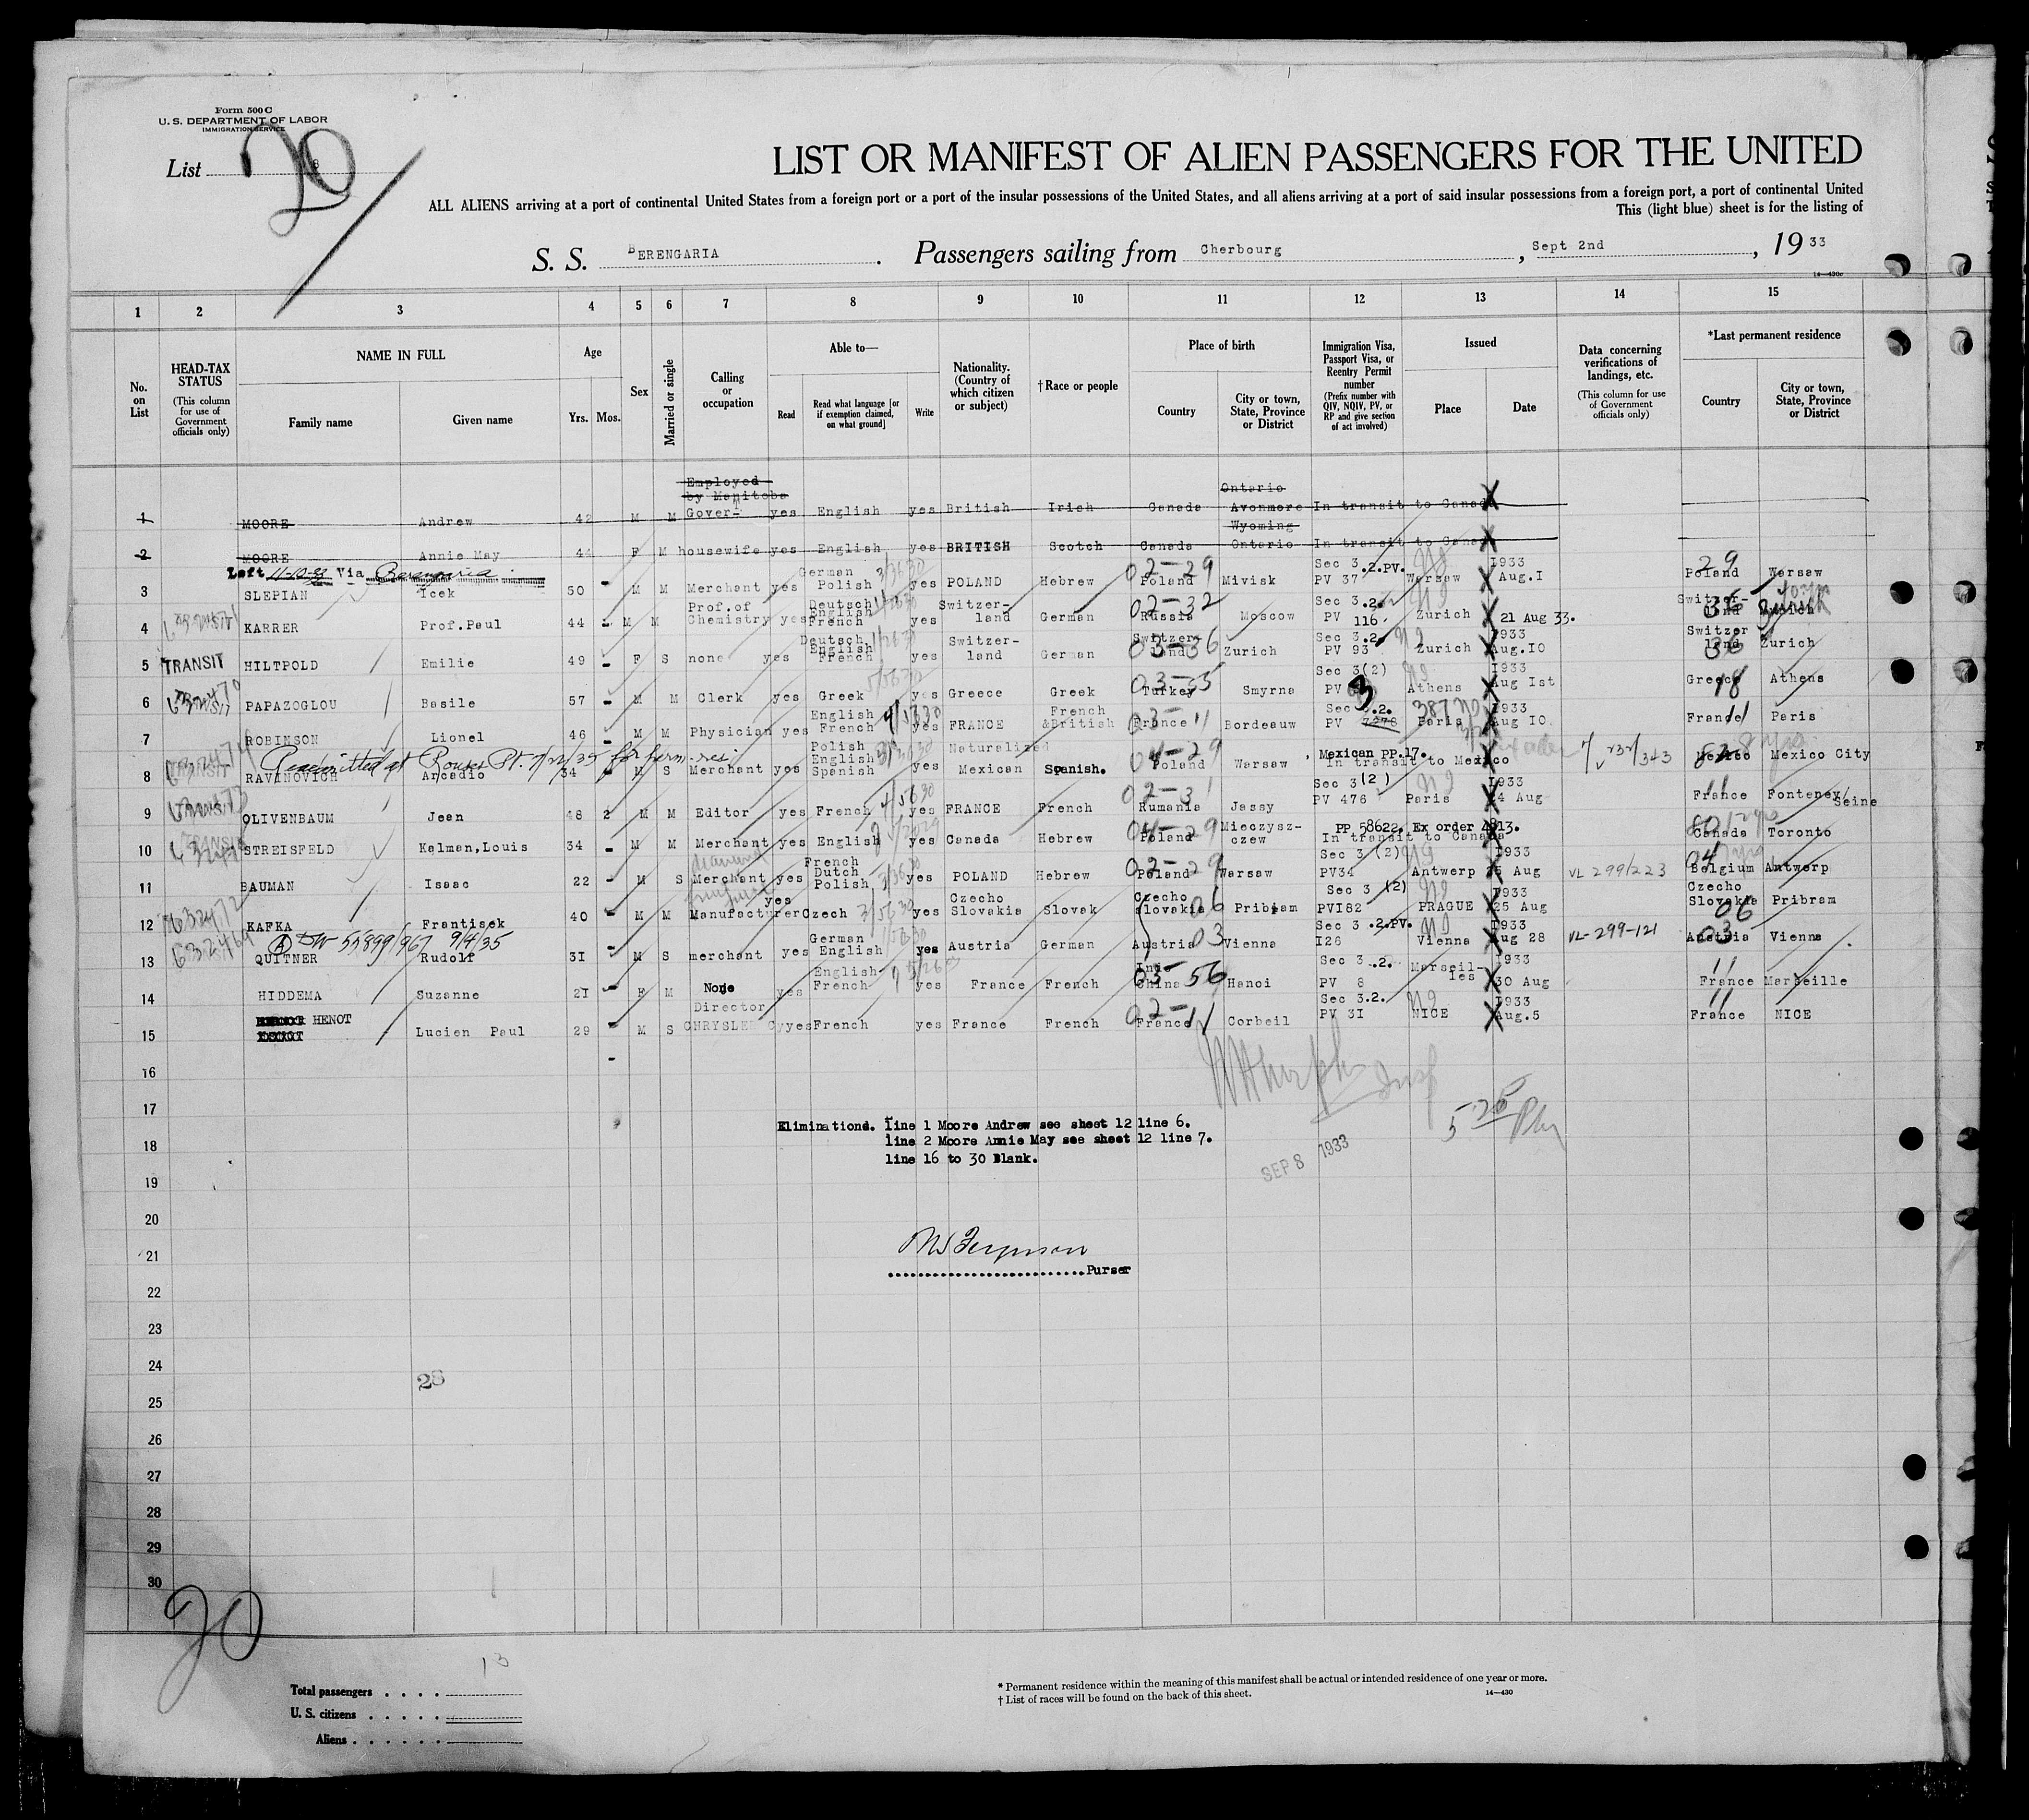 Form 500 C
U. S. DEPARTMENT OF LABOR
IMMIGRATION SERVICE
List 20
LIST OR MANIFEST OF ALIEN PASSENGERS FOR THE UNITED
ALL ALIENS arriving at a port of continental United States from a foreign port or a port of the insular possessions of the United States, and all aliens arriving at a port of said insular possessions from a foreign port, a port of continental United
This (light blue) sheet is for the listing of
S. S. BERENGARIA. Passengers sailing from Cherbourg, Sept 2nd, 1933
14—430c
1 2 3 4 5 6 7 8 9 10 11 12 13 14 15
No. on List
HEAD-TAX STATUS (This column for use of Government officials only)
NAME IN FULL
Family name Given name
Age
Yrs. Mos.
Sex
Married or single
Calling or occupation
Able to—
Read
Read what language [or if exemption claimed, on what ground]
Write
Nationality. (Country of which citizen or subject)
†Race or people
Place of birth
Country
City or town, State, Province or District
Immigration Visa, Passport Visa, or Reentry Permit number (Prefix number with QIV, NQIV, PV, or RP and give section of act involved)
Issued
Place Date
Data concerning verifications of landings, etc. (This column for use of Government officials only)
*Last permanent residence
Country
City or town, State, Province or District
1 MOORE Andrew 42 M M Employed by Manitoba Gover- yes English yes British Irish Canada Ontario Avonmore Wyoming In transit to Canada
2 MOORE Annie May 44 F M housewife yes English yes BRITISH Scotch Canada Ontario In transit to Canada
Left 11-10-33 Via Berengaria
3 SLEPIAN Icek 50 M M Merchant yes German Polish yes POLAND Hebrew 02-29 Poland Mivisk Sec 3.2.PV. PV 37 Warsaw 1933 Aug.I 29 Poland Warsaw
4 KARRER Prof.Paul 44 M M Prof.of Chemistry yes Deutsch English French yes Switzer-land German 02-32 Russia Moscow Sec 3.2. PV 116 Zurich 21 Aug 33. Switzer-land 36 Zurich
5 TRANSIT HILTPOLD Emilie 49 F S none yes Deutsch English French yes Switzer-land German 03-36 Switzer-land Zurich Sec 3.2. PV 93 Zurich 1933 Aug.IO Switzer land 36 Zurich
6 PAPAZOGLOU Basile 57 M M Clerk yes Greek yes Greece Greek 03-35 Turkey Smyrna Sec 3(2) PV 3 Athens 1933 Aug Ist Greece 18 Athens
7 ROBINSON Lionel 46 M M Physician yes English French yes FRANCE French &British 03-11 France Bordeauw Sec 3.2. PV 7278 387 Paris 1933 Aug IO France 11 Paris
Readmitted at Rouses Pt. for perm. res.
8 RAVINOVICH Arcadio 34 M S Merchant yes Polish English Spanish yes Naturalized Mexican Spanish. 04-29 Poland Warsaw Mexican PP.17. In transit to Mexico Mexico Mexico City
9 TRANSIT OLIVENBAUM Jean 48 2 M M Editor yes French yes FRANCE French 02-31 Rumania Jassy Sec 3(2) PV 476 Paris 1933 24 Aug 11 France Fonteney/Seine
10 TRANSIT STREISFELD Kalman,Louis 34 M M Merchant yes English yes Canada Hebrew 04-29 Poland Mieczysz-czew PP 58622. Ex order 4813. In transit to Canada Canada Toronto
11 BAUMAN Isaac 22 M S Merchant yes French Dutch Polish yes POLAND Hebrew 02-29 Poland Warsaw Sec 3 (2) PV34 Antwerp 1933 5 Aug VL 299/223 Belgium Antwerp
12 KAFKA Frantisek 40 M M Manufacturer yes Czech yes Czecho Slovakia Slovak Czecho Slovakia 06 Pribram Sec 3 (2) PVI82 PRAGUE 1933 25 Aug Czecho Slovakia 06 Pribram
DW 55899/967 9/4/35
13 QUITNER Rudolf 3I M S merchant yes German English yes Austria German Austria 03 Vienna Sec 3.2.PV. I26 Vienna 1933 Aug 28 VL-299-121 Austria 03 Vienna
14 HIDDEMA Suzanne 2I F M None yes English French yes France French 03-56 Ind- China Hanoi Sec 3.2. PV 8 Marseil-les 1933 30 Aug 11 France Marseille
15 HENOT Lucien Paul 29 M S Director CHRYSLER Cy yes French yes France French 02-11 France Corbeil Sec 3.2. PV 3I NICE 1933 Aug.5 11 France NICE
16
17
18
19
20
21
22
23
24
25
26
27
28
29
30
Eliminationd. line 1 Moore Andrew see sheet 12 line 6.
line 2 Moore Annie May see sheet 12 line 7.
line 16 to 30 Blank.
SEP 8 1933
Purser
28
20
13
Total passengers
U. S. citizens
Aliens
* Permanent residence within the meaning of this manifest shall be actual or intended residence of one year or more.
† List of races will be found on the back of this sheet.
14—430